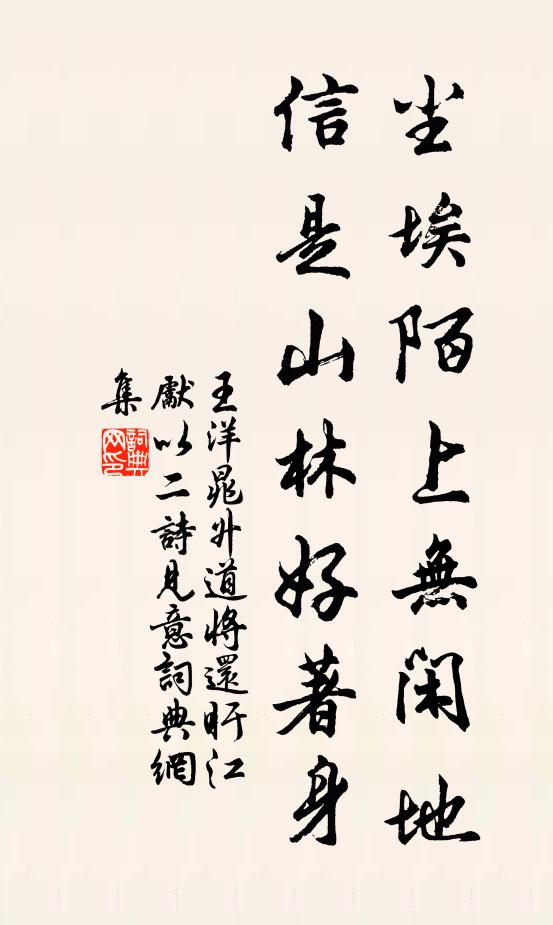 尘埃陌上無閑地
信是山林好著身
王洋晁外道將還盱江
獻以二詩見意詞典網
集
詞典網印